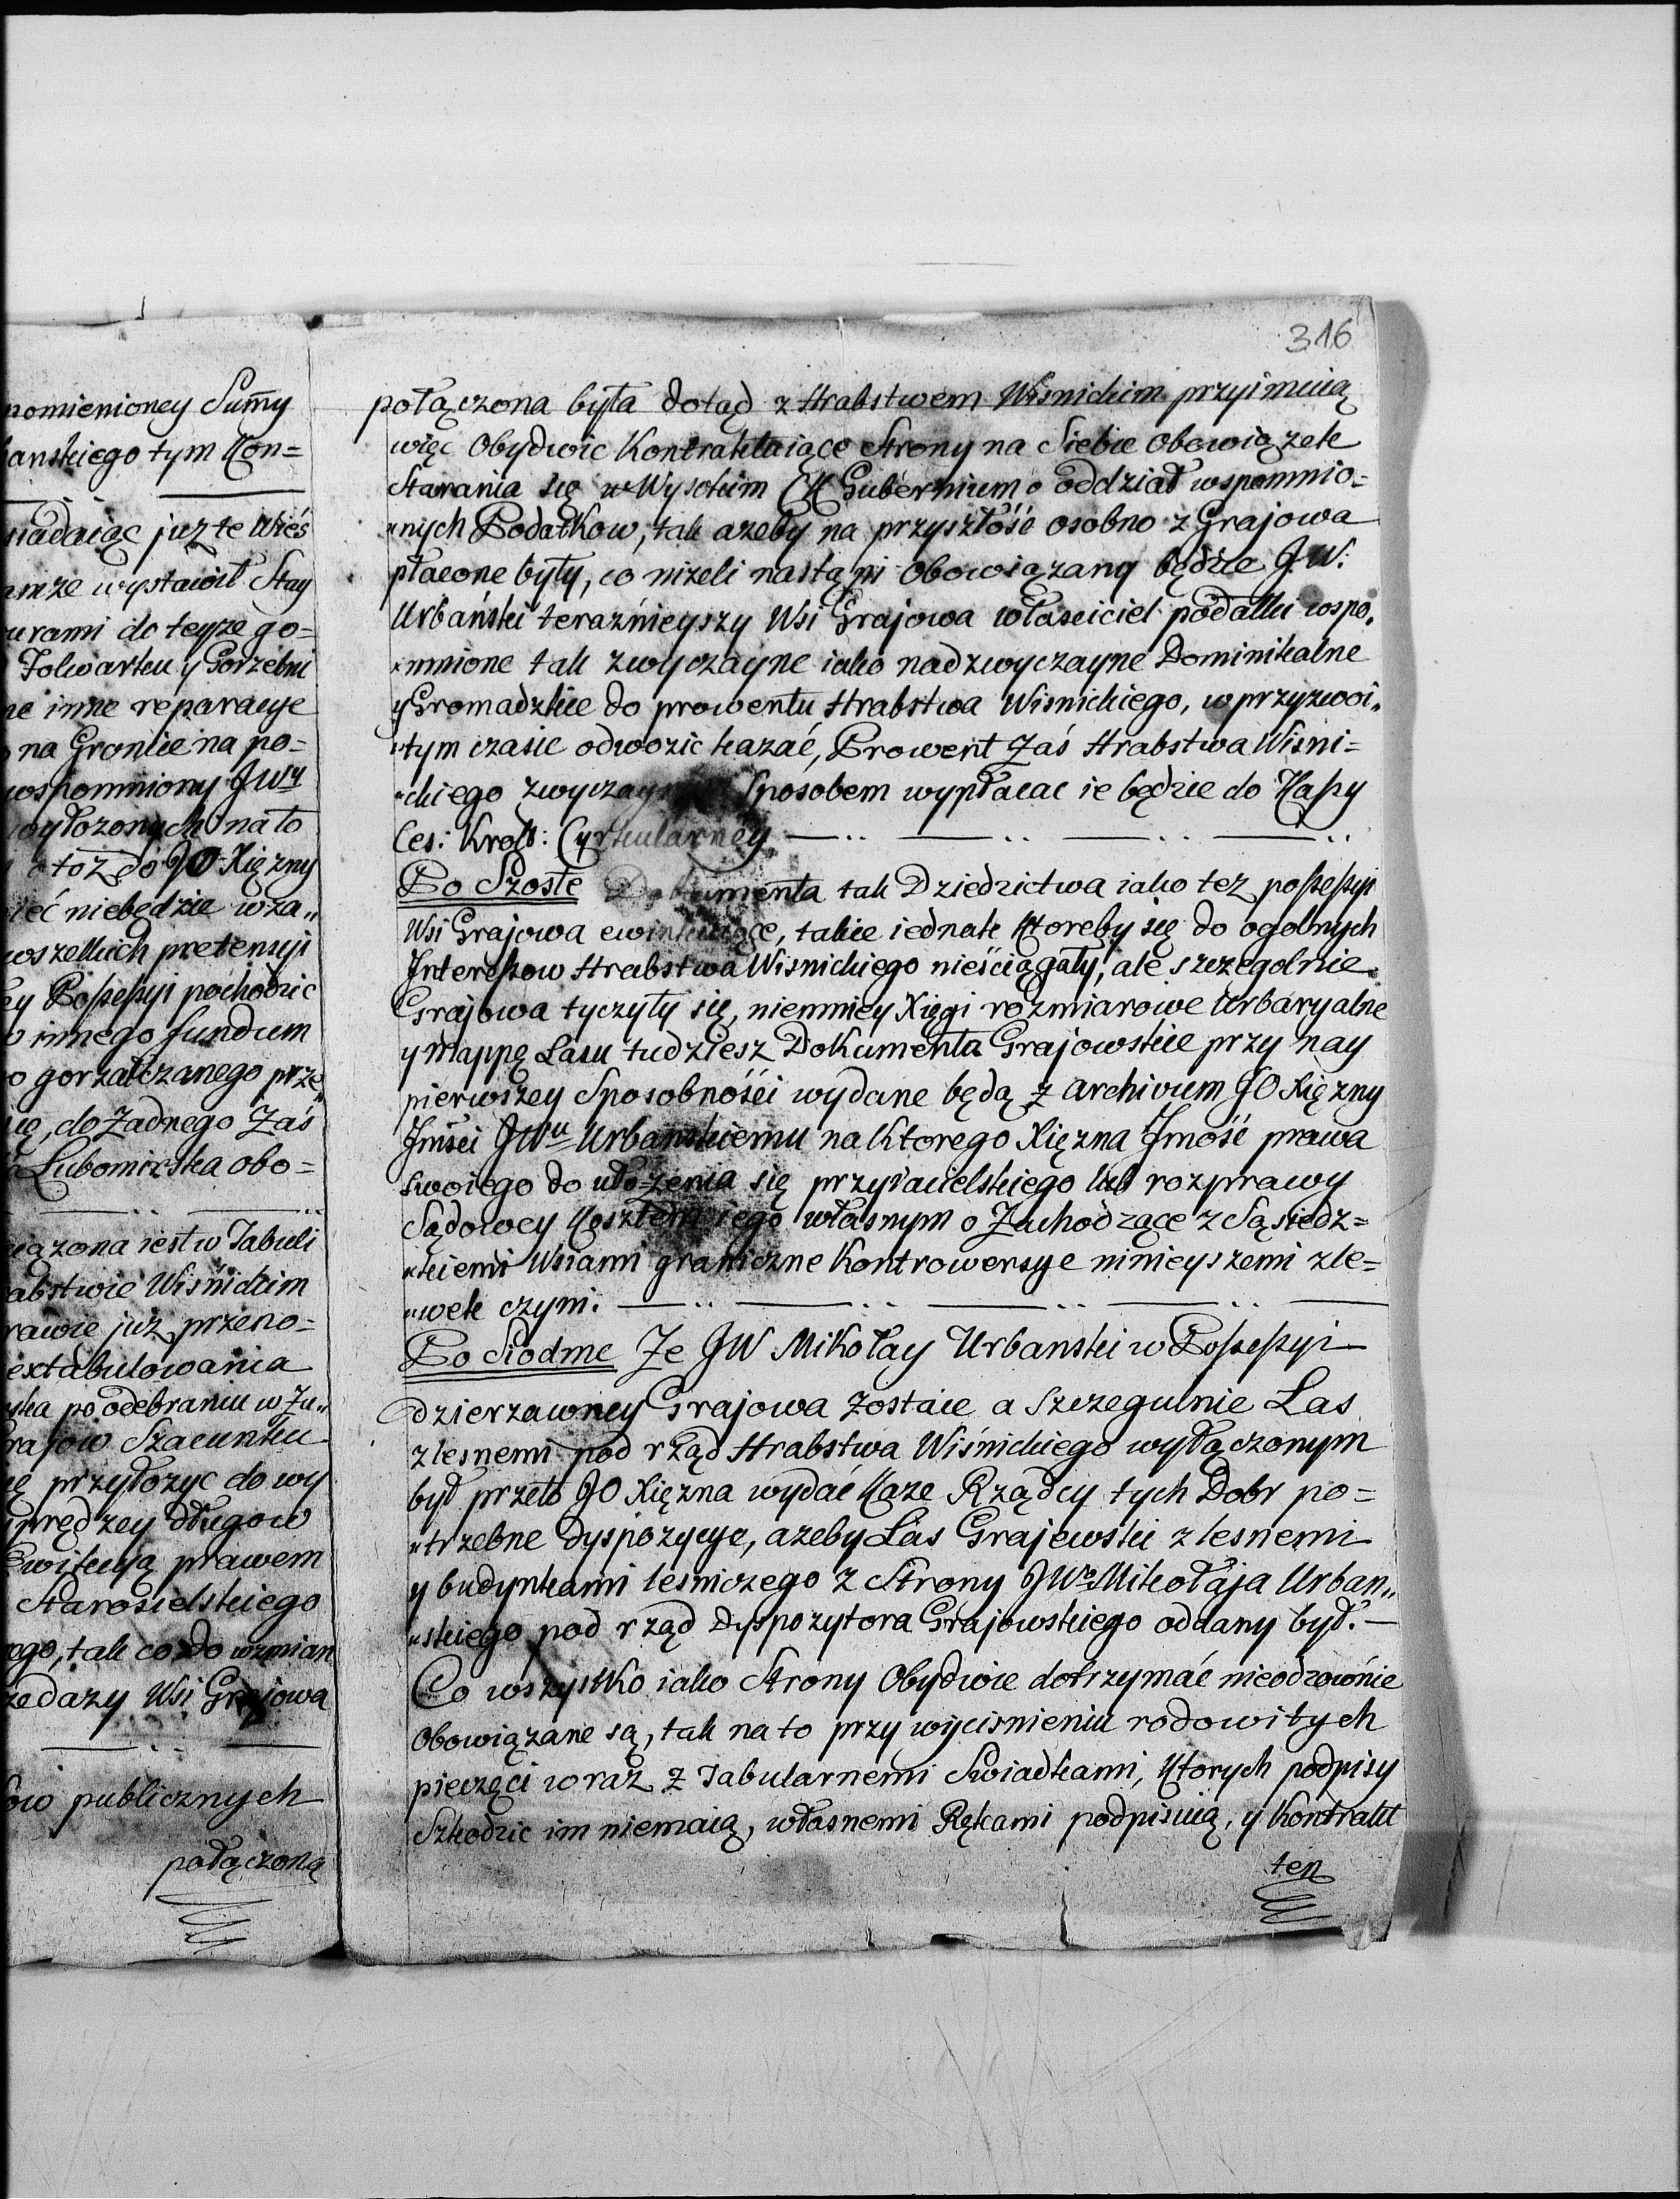 pomienioney Summy
anskiego tym Kon=
siadaiąc juz te Wieś
amze wystawił Stay
urami do teyze go=
Folwarku y Gorzelni
ne inne reparacye
na Gronlie na po=
wspomniony JWy
wyłozonych na to
otoz do JO Xięzny
ieć niebędzie w za„
wszelkich pretensyi
ey Possessyi pochodzić
o innego fundum
o gorzałczanego prze„
ię, do Zadnego Zaś
Lubomirska obo=
iązona iest w Tabuli
abstwie Wiśnickim
rawie już przeno=
extabulowania
ska po odebraniu w Zu„
rajow Szacunku
ę przyłozyc do wy
prędzey długow
Ewikcyą prawem
Starosielskiego
ego, tak co do wzmian
zedazy Wsi Grajowa
ow publicznych
połączona
316
połączona była dotąd z Hrabstwem Wisnickim przyimuią
więc Obydwie Kontraktuiące Strony na Siebie Obowiązek
Starania się w Wysokim CK Gubernium o oddział wspomnio=
„nych Podatkow, tak azeby na przyszłość osobno z Grajowa
płacone były, co nizeli nastąpi Obowiązany będzie J.W:
Urbański teraźnieyszy Wsi Grajowa właściciel podatki wspo„
„mnione tak zwyczayne iako nadzwyczayne Dominikalne
y Gromadzkie do prowentu Hrabstwa Wisnickiego, w przyzwoi„
„tym czasie odwozic kazać, Prowent Zaś Hrabstwa Wisni=
„ckiego zwyczaynym Sposobem wypłacac ie będzie do Kassy
Ces: Krols: Cyrkularney.
Po Szoste Dokumenta tak Dziedzictwa iako tez possessyi
Wsi Grajowa ewinkuiące, takie iednak Ktoreby się do ogolnych
Interessow Hrabstwa Wisnickiego nieściągały, ale szczegolnie
Grajowa tyczyły się, niemniey Xięgi rozmiarowe Urbaryalne
y Mappę Lasu tudziesz Dokumenta Grajowskie przy nay
pierwszey Sposobności wydane będą z archivum JO Xięzny
Jmści JWu Urbanskiemu na Ktorego Xięzna Jmość prawa
swoiego do ułozenia się przyiacielskiego lub rozprawy
Sądowey Kosztem iego własnym o Zachodzące z Sąsiedz=
„kiemi Wsiami graniczne Kontrowersye ninieyszemi zle=
„wek czyni.
Po Siodme Ze JW Mikołay Urbanski w Possessyi
dzierzawney Grajowa zostaie a Szczegulnie Las
z lesnemi pod rząd Hrabstwa Wiśnickiego wyłączonym
był przeto JO Xięzna wydać Kaze Rządcy tych Dobr po=
„trzebne dyspozycye, azeby Las Grajewski z lesnemi
y budynkami lesniczego z Strony JWo Mikołaja Urban„
„skiego pod rząd Dyspozytora Grajowskiego oddany był.
Co wszystko iako Strony Obydwie dotrzymać nieodzownie
Obowiązane są, tak na to przy wyciśnieniu rodowitych
pieczęci wraz z Tabularnemi Swiadkami, Ktorych podpisy
Szkodzic im niemaią, własnemi Rękami podpisuią, y Kontrakt
ten